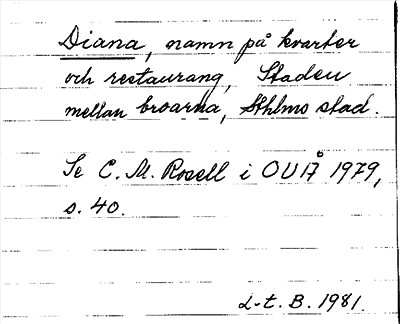 Diana, namn på kvarter
och restaurang, Staden
mellan broarna, Sthlms stad.
Se C. M. Rosell i OUÅ 1979,
s. 40.
L-t. B. 1981.